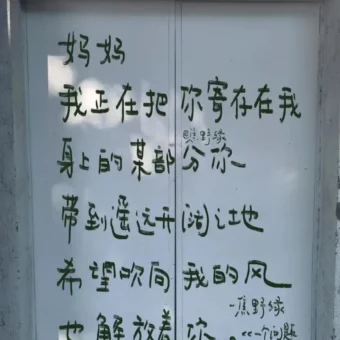 妈妈
我正在把你寄存在我
焦野绿
身上的某部分你
带到遥远开阔之地
希望吹向我的风
-焦野绿
也解放着你.
<<一个问题